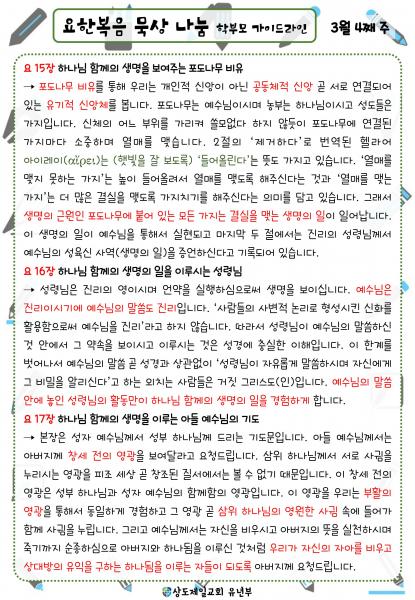 요한복음 묵상 나눔 학부모 가이드라인 3월 4째 주
요 15장 하나님 함께의 생명을 보여주는 포도나무 비유
→ 포도나무 비유를 통해 우리는 개인적 신앙이 아닌 공동체적 신앙 곧 서로 연결되어
있는 유기적 신앙체를 봅니다. 포도나무는 예수님이시며 농부는 하나님이시고 성도들은
가지입니다. 신체의 어느 부위를 가리켜 쓸모없다 하지 않듯이 포도나무에 연결된
가지마다 소중하며 열매를 맺습니다. 2절의 ‘제거하다’로 번역된 헬라어
아이레이(αἴρει)는 (햇빛을 잘 보도록) ‘들어올린다’는 뜻도 가지고 있습니다. ‘열매를
맺지 못하는 가지’는 높이 들어올려서 열매를 맺도록 해주신다는 것과 ‘열매를 맺는
가지’는 더 많은 결실을 맺도록 가지치기를 해주신다는 의미를 담고 있습니다. 그래서
생명의 근원인 포도나무에 붙어 있는 모든 가지는 결실을 맺는 생명의 일이 일어납니다.
이 생명의 일이 예수님을 통해서 실현되고 마지막 두 절에서는 진리의 성령님께서
예수님의 성육신 사역(생명의 일)을 증언하신다고 기록되어 있습니다.
요 16장 하나님 함께의 생명의 일을 이루시는 성령님
→ 성령님은 진리의 영이시며 언약을 실행하심으로써 생명을 보이십니다. 예수님은
진리이시기에 예수님의 말씀도 진리입니다. ‘사람들의 사변적 논리로 형성시킨 신화를
활용함으로써 예수님을 진리’라고 하지 않습니다. 따라서 성령님이 예수님의 말씀하신
것 안에서 그 약속을 보이시고 이루시는 것은 성경에 충실한 이해입니다. 이 한계를
벗어나서 예수님의 말씀 곧 성경과 상관없이 ‘성령님이 자유롭게 말씀하시며 자신에게
그 비밀을 알리신다’고 하는 외치는 사람들은 거짓 그리스도(인)입니다. 예수님의 말씀
안에 놓인 성령님의 활동만이 하나님 함께의 생명의 일을 경험하게 합니다.
요 17장 하나님 함께의 생명을 이루는 아들 예수님의 기도
→ 본장은 성자 예수님께서 성부 하나님께 드리는 기도문입니다. 아들 예수님께서는
아버지께 창세 전의 영광을 보여달라고 요청드립니다. 삼위 하나님께서 서로 사귐을
누리시는 영광을 피조 세상 곧 창조된 질서에서는 볼 수 없기 때문입니다. 이 창세 전의
영광은 성부 하나님과 성자 예수님의 함께함의 영광입니다. 이 영광을 우리는 부활의
영광을 통해서 동일하게 경험하고 그 영광 곧 삼위 하나님의 영원한 사귐 속에 들어가
함께 사귐을 누립니다. 그리고 예수님께서는 자신을 비우시고 아버지의 뜻을 실천하시며
죽기까지 순종하심으로 아버지와 하나됨을 이루신 것처럼 우리가 자신의 자아를 비우고
상대방의 유익을 구하는 하나됨을 이루는 자들이 되도록 아버지께 요청드립니다.
상도제일교회 유년부